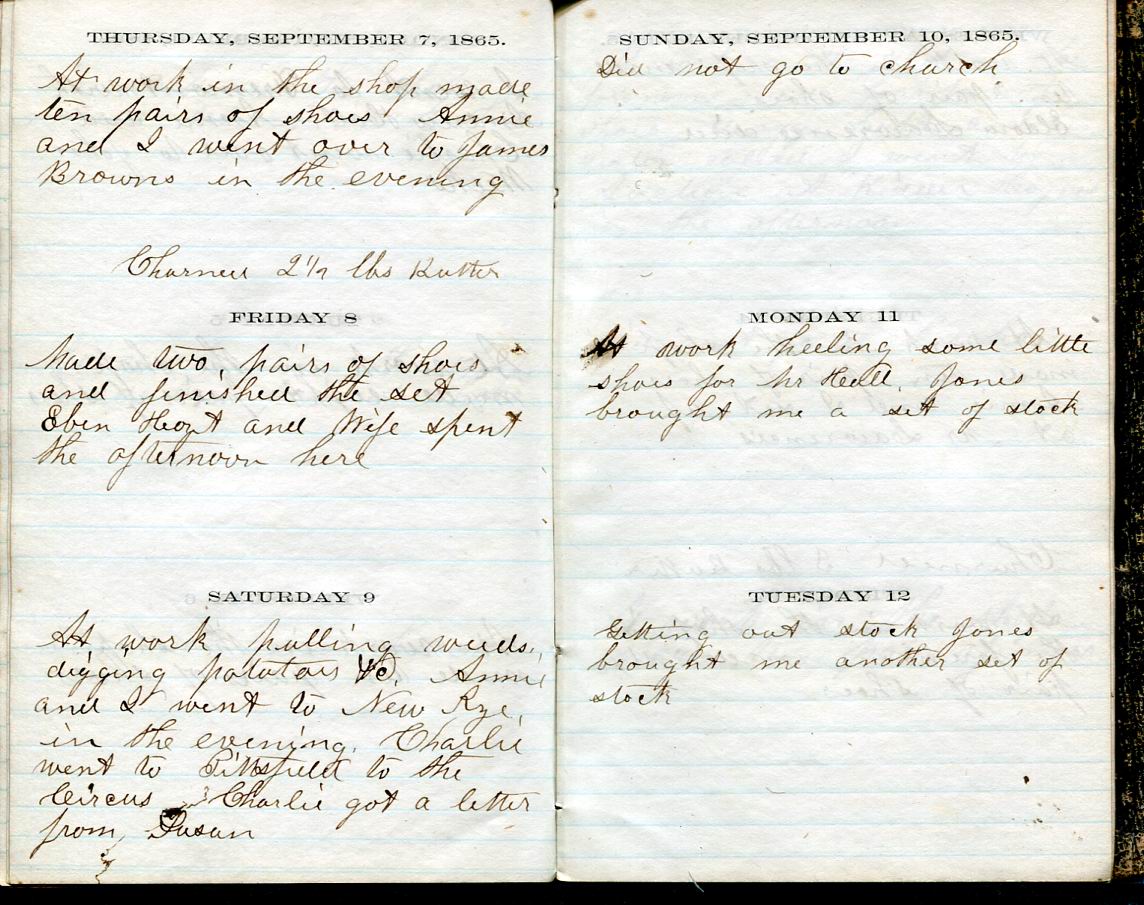 THURSDAY, SEPTEMBER 7, 1865.
At work in the shop made
ten pairs of shoes Annie
and I went over to James
Browns in the evening
2 1/2 lbs Butter
FRIDAY 8
Made two pairs of shoes
and finished the set
Eben Hoyt and Wife spent
the afternoon here
SATURDAY 9
At work pulling weeds,
digging potatoes &c. Annie
and I went to New Rye,
in the evening. Charlie
went to Pittsfield to the
Circus Charlie got a letter
from Susan
SUNDAY, SEPTEMBER 10, 1865.
Did not go to church
MONDAY 11
At work heeling some little
shoes for Mr Jones
brought me a set of stock
TUESDAY 12
Getting out stock Jones
brought me another set of
stock